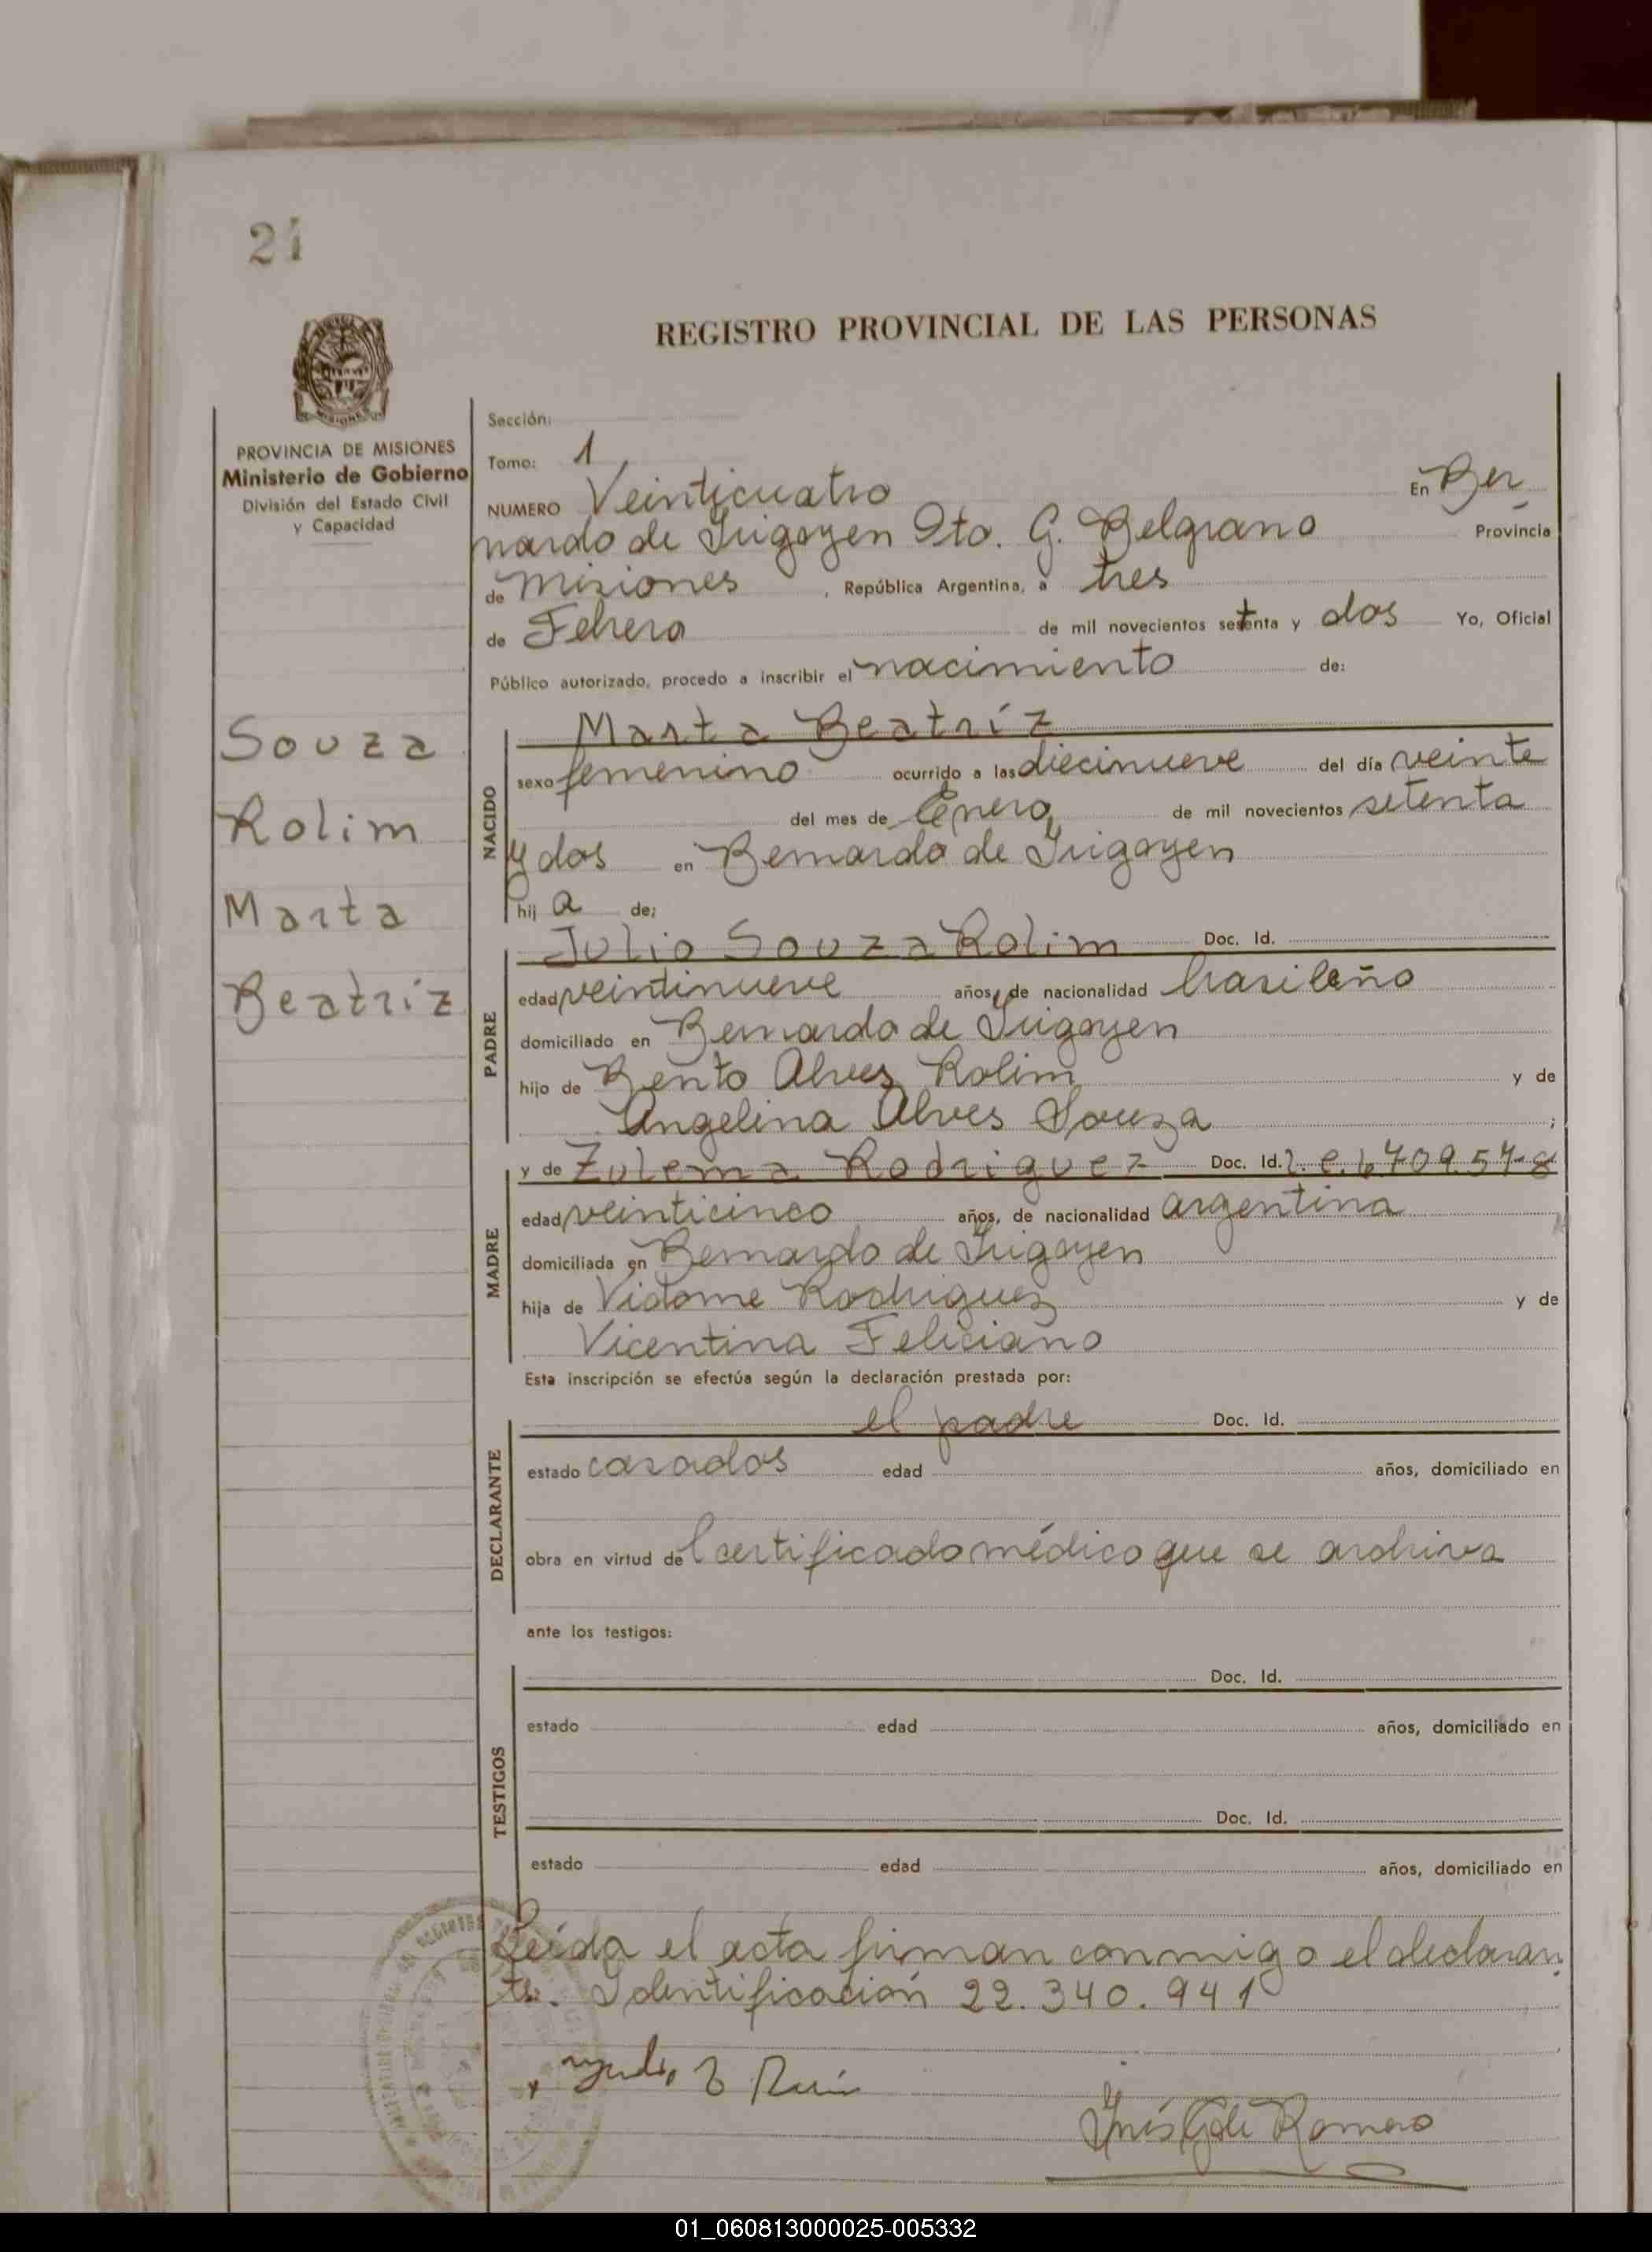 21
REGISTRO PROVINCIAL DE LAS PERSONAS
PROVINCIA DE MISIONES
Ministerio de Gobierno
División del Estado Civil
y Capacidad
Souza
Rolim
Marta
Beatríz
Sección:
Tomo: 1
NUMERO Veinticuatro En Ber
nardo de Irigoyen Dto. G. Belgrano Provincia
de Misiones, República Argentina, a tres
de Febrero de mil novecientos setenta y dos Yo, Oficial
Público autorizado, procedo a inscribir el nacimiento de:
NACIDO
Marta Beatríz
sexo femenino ocurrido a las diecinueve del día veinte
del mes de Enero de mil novecientos setenta
y dos en Bernardo de Irigoyen
hij a de;
PADRE
Julio Souza Rolim Doc. Id.
edad veintinueve años, de nacionalidad brasileño
domiciliado en Bernardo de Irigoyen
hijo de Bento Alves Rolim y de
Angelina Alves Souza ;
MADRE
y de Zulema Rodriguez Doc. Id.
edad veinticinco años, de nacionalidad argentina
domiciliada en Bernardo de Irigoyen
hija de Rodriguez y de
Vicentina Feliciano
Esta inscripción se efectúa según la declaración prestada por:
DECLARANTE
el padre Doc. Id.
estado casados edad años, domiciliado en
obra en virtud del certificado médico que se archiva
ante los testigos:
TESTIGOS
Doc. Id.
estado edad años, domiciliado en
Doc. Id.
estado edad años, domiciliado en
Leída el acta firman conmigo el declaran
te. Identificación 22.340.941
Inés G de Romero
01_060813000025-005332